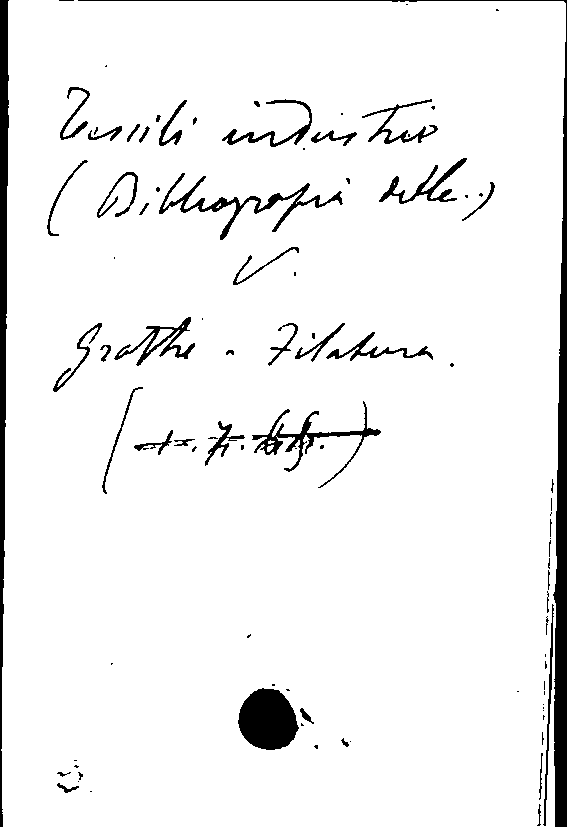 Tessili industrie
(Bibliografia delle..)
V.
Grothe - Filatura.